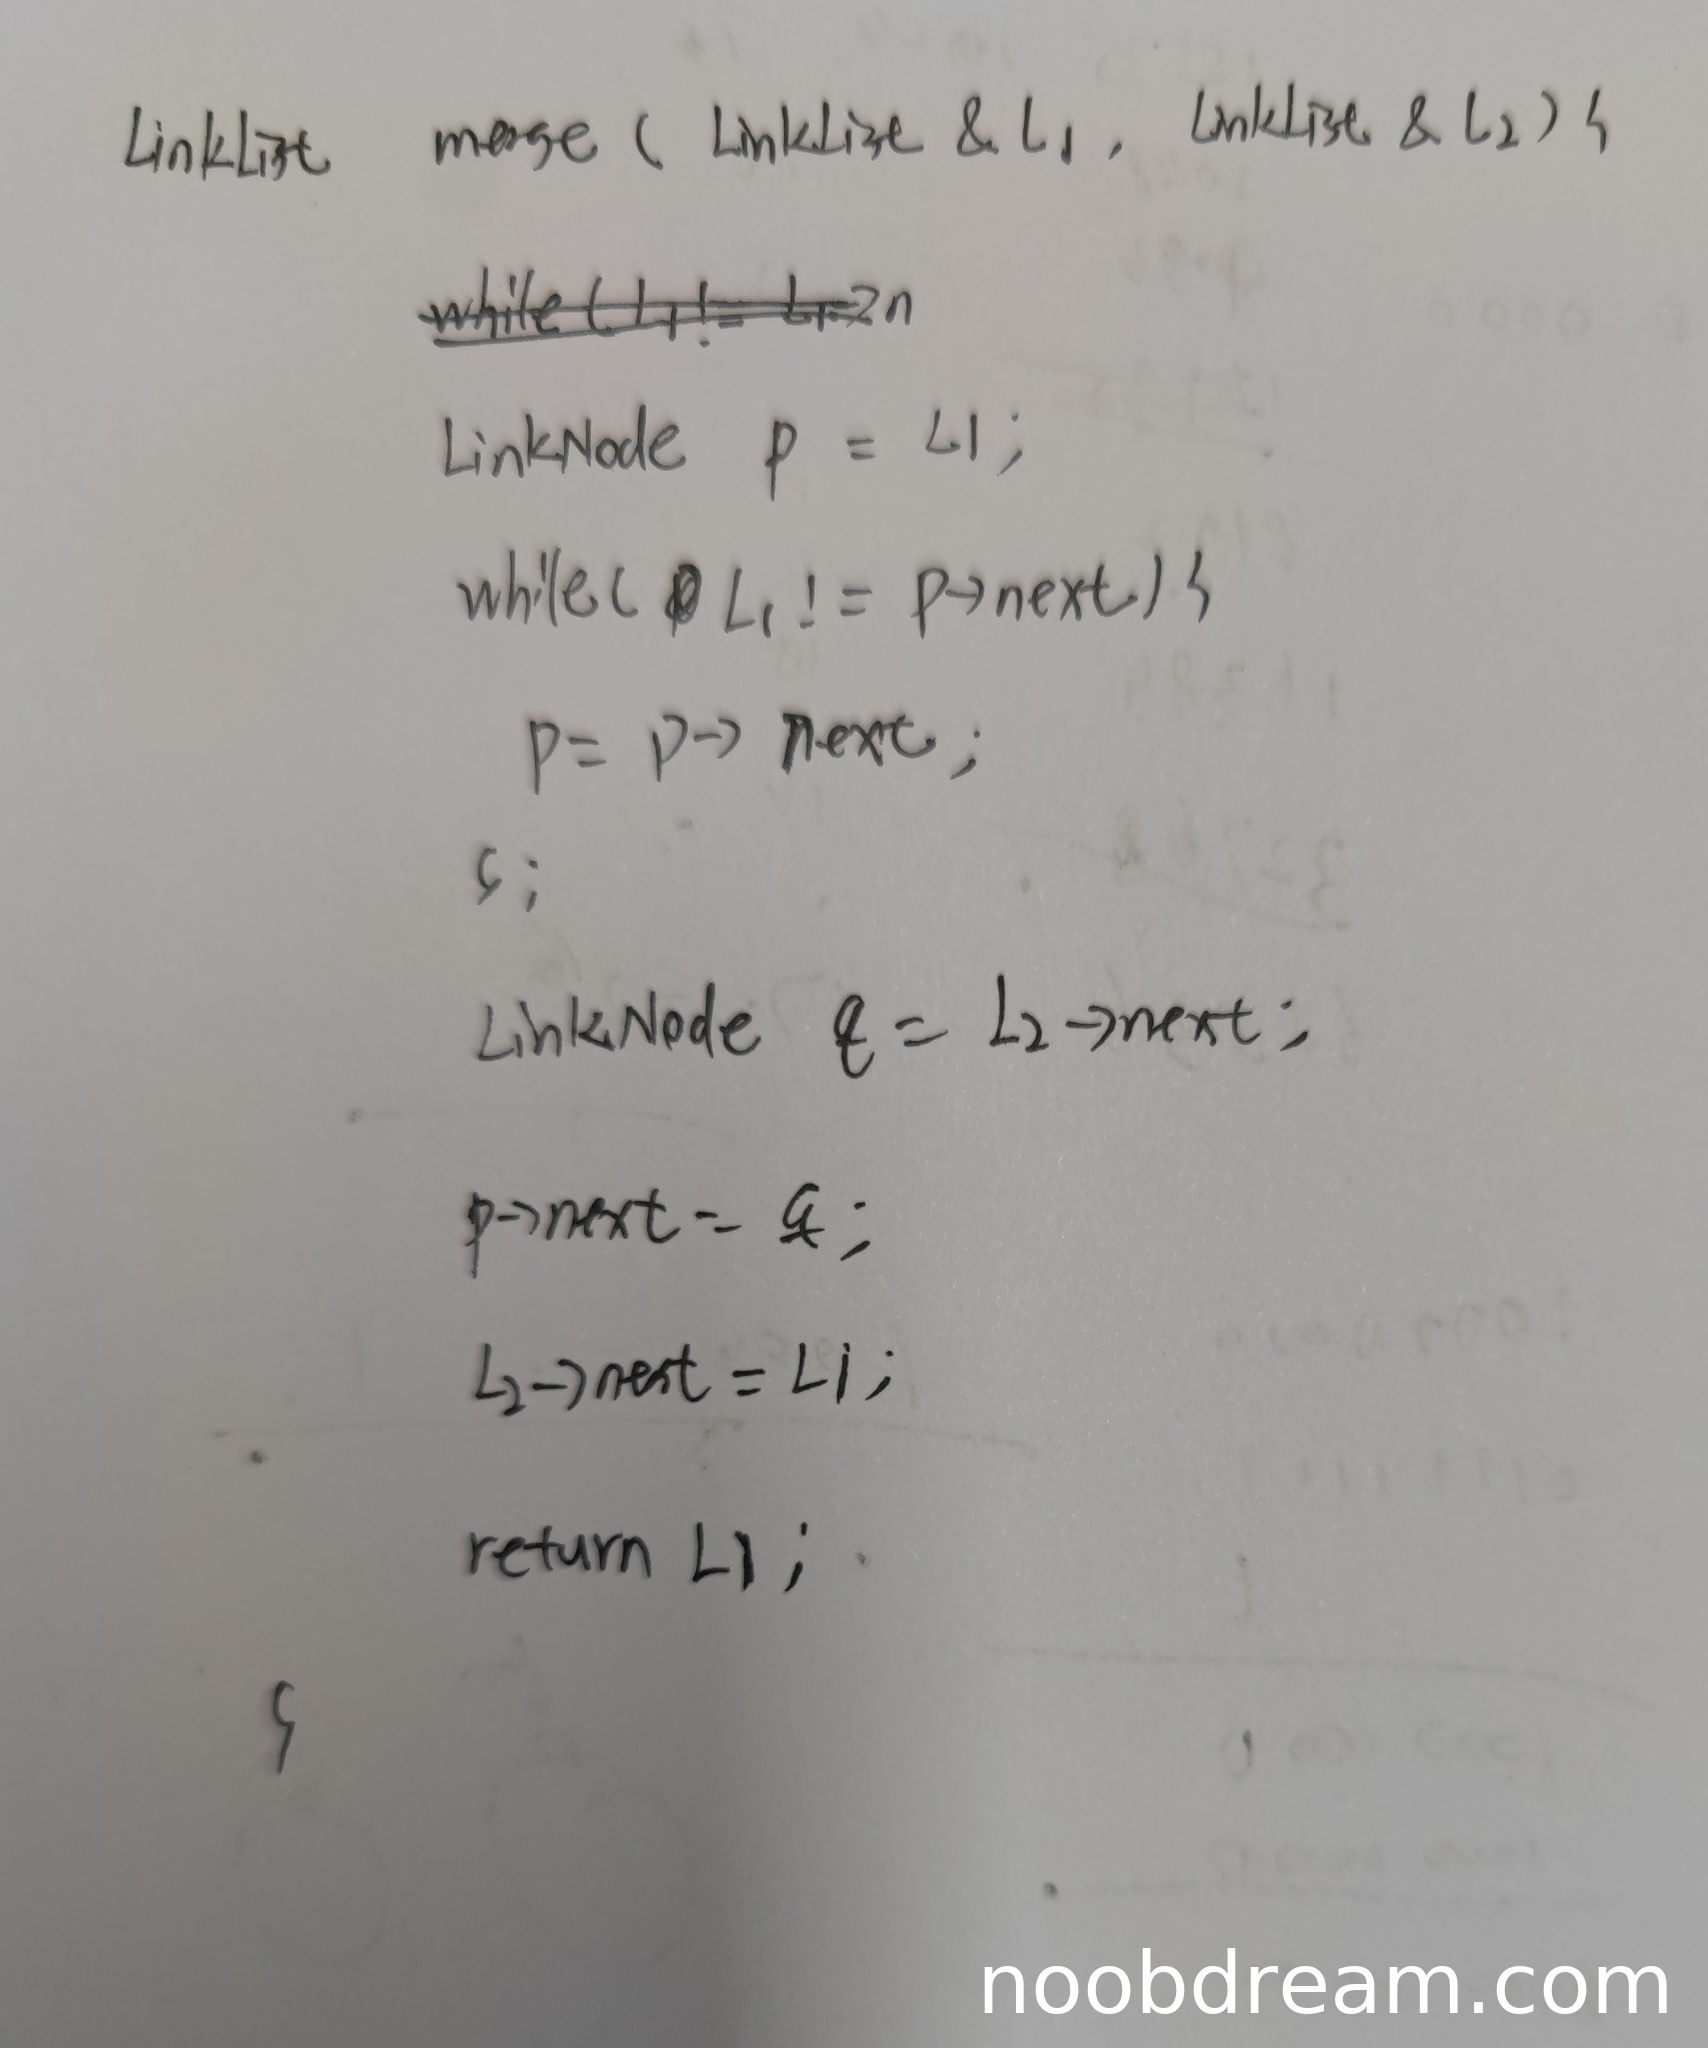 LinkList merge ( LinkList & L1, LinkList & L2) {
while ( L1 != L1->n
LinkNode p = L1;
while( L1 != p->next) {
p = p-> next;
};
LinkNode q = L2->next;
p->next = q;
L2->next = L1;
return L1;
}
noobdream.com